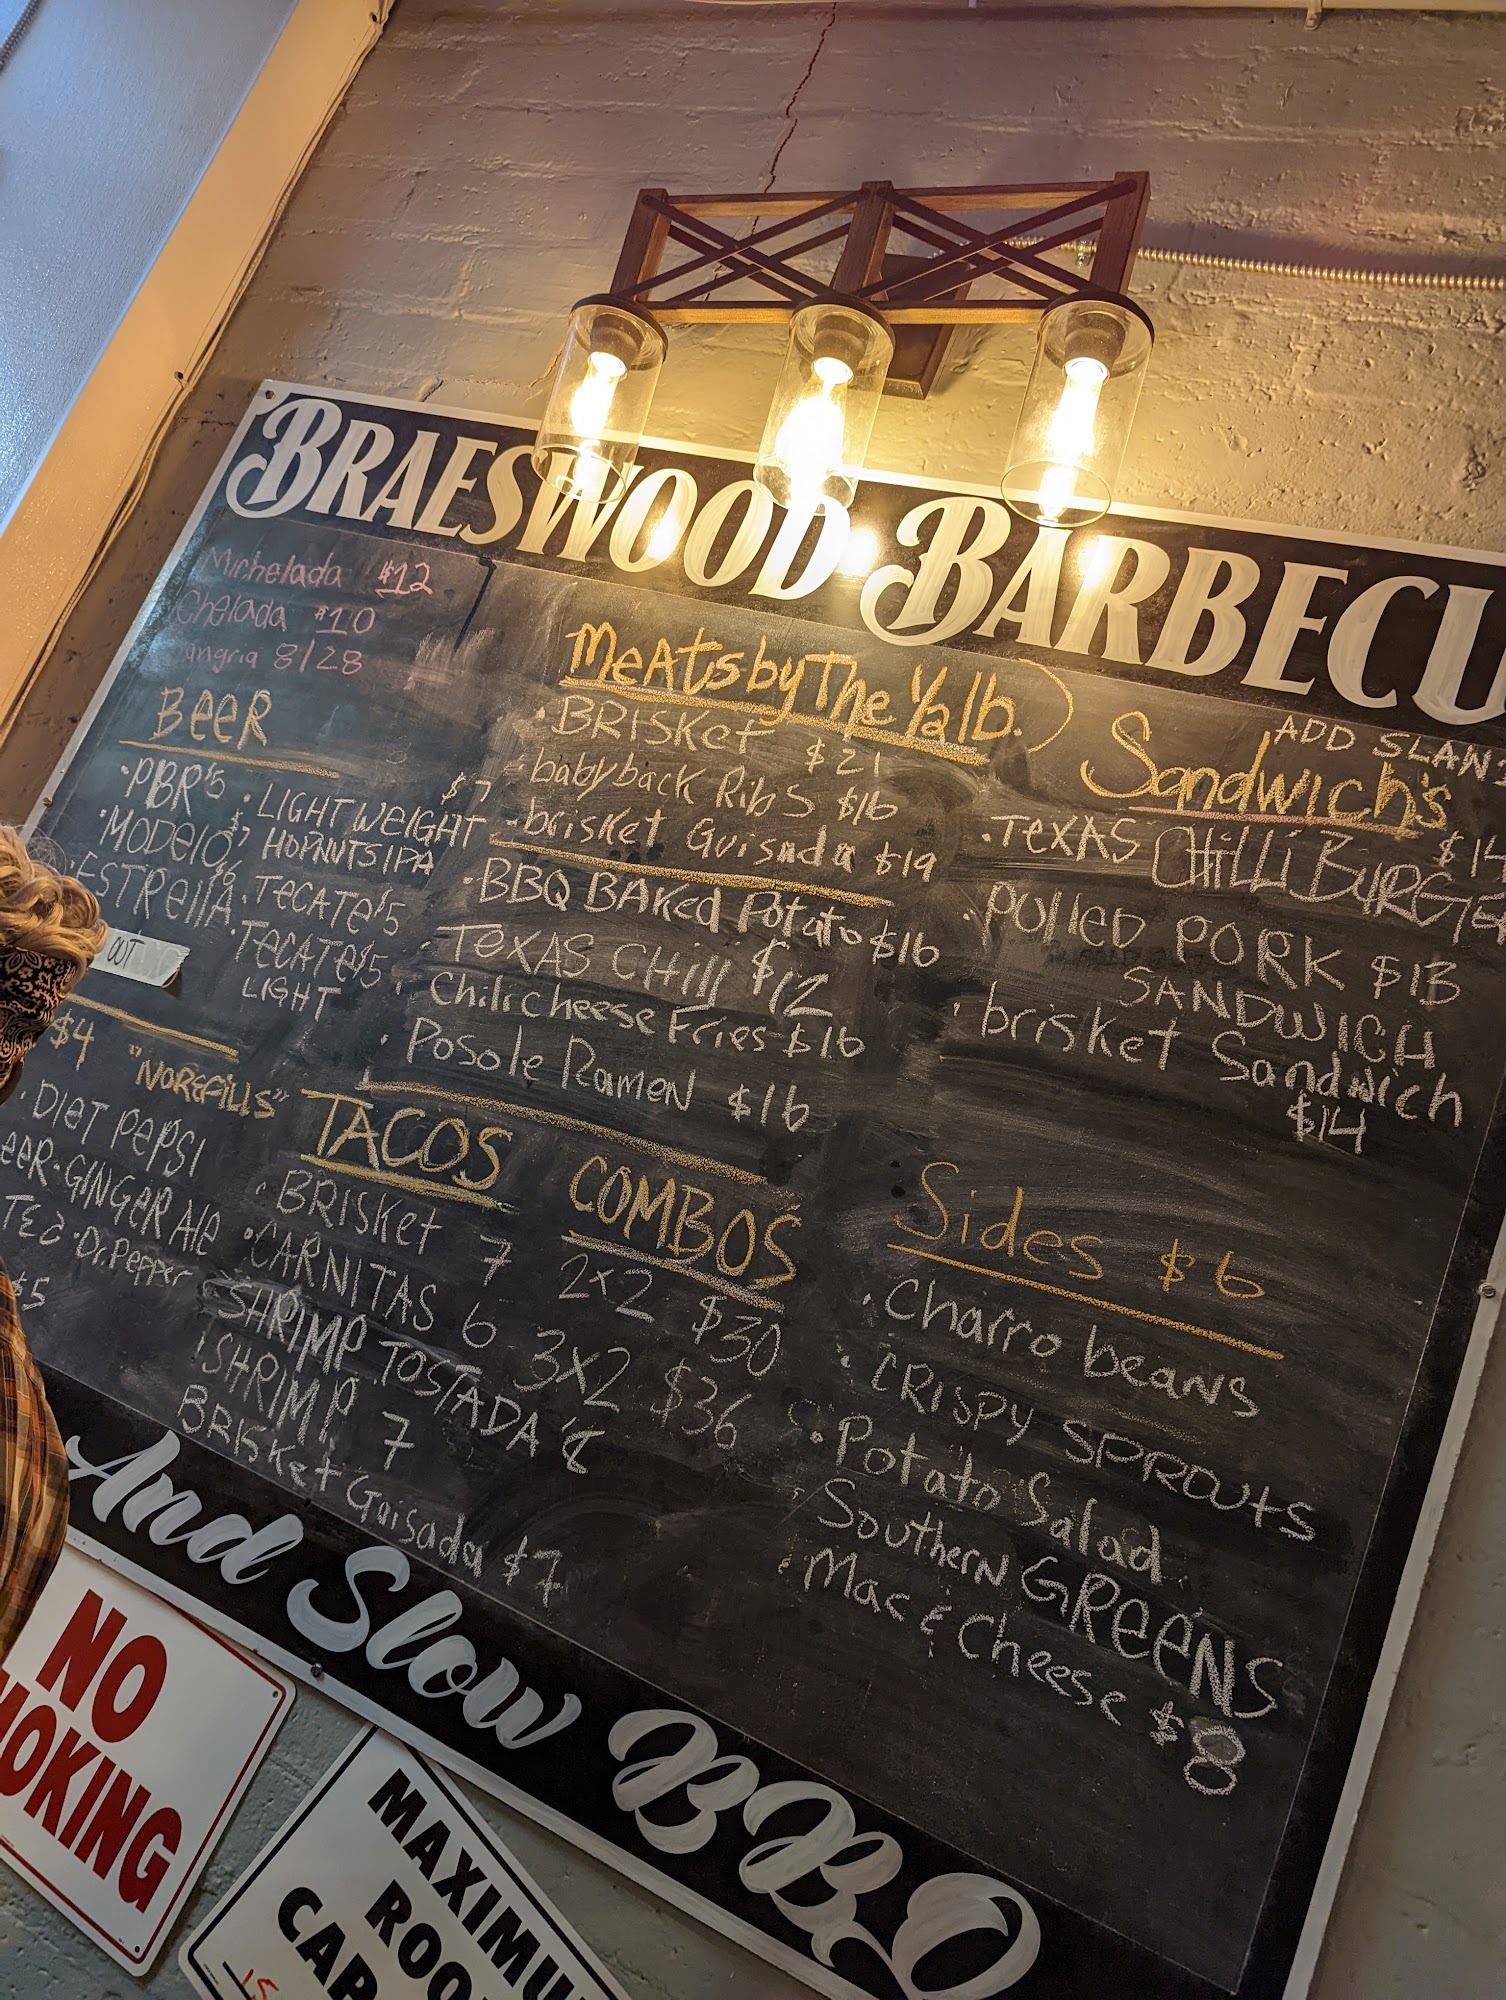 BRAESWOOD BARBECU
Michelada $12
Chelada $10
angria 8/28
BEER
• PBR 5
• MODELO 7
• ESTRELLA 6
OUT
• LIGHT WEIGHT $7
HOPNUTS IPA
• TECATE $5
• TECATE $5
LIGHT
$4 "NOREFILLS"
• DIET PEPSI
EER • GINGER ALE
TEA • Dr. Pepper
$5
MEATS by The 1/2 lb.)
• BRISKET $21
• babyback Ribs $16
• brisket Guisada $19
• BBQ BAKED Potato $16
• TEXAS CHILI $12
• Chili Cheese Fries $16
• Posole Ramen $16
TACOS
• BRISKET 7
• CARNITAS 6
SHRIMP TOSTADA 8
SHRIMP 7
BRISKET Guisada $7
COMBO'S
2x2 $30
3x2 $36
ADD SLAW
Sandwich's
• TEXAS CHILLI BURGER
• PULLED PORK $13
SANDWICH
• brisket Sandwich
$14
Sides $6
• Charro beans
• CRISPY SPROUTS
• Potato Salad
• Southern GREENS
• Mac & Cheese $8
And Slow BBQ
NO
MOKING
MAXIMU
ROO
CAP